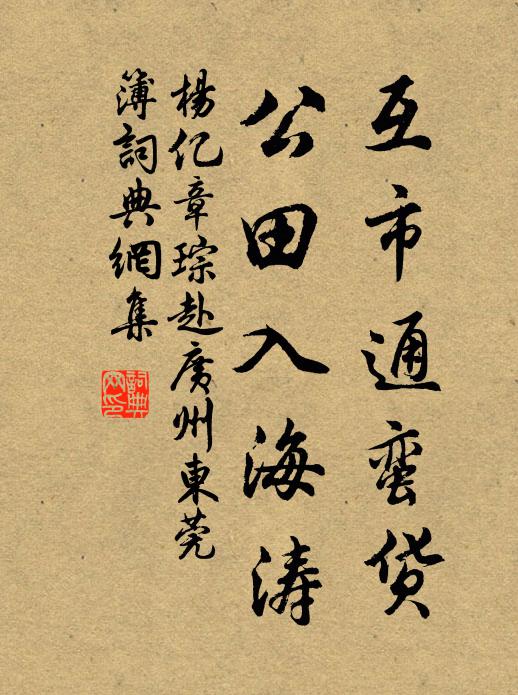 互市通蛮货
公田入海涛
楊亿章琮赴廣州東莞
簿詞典網集
詞典
网印